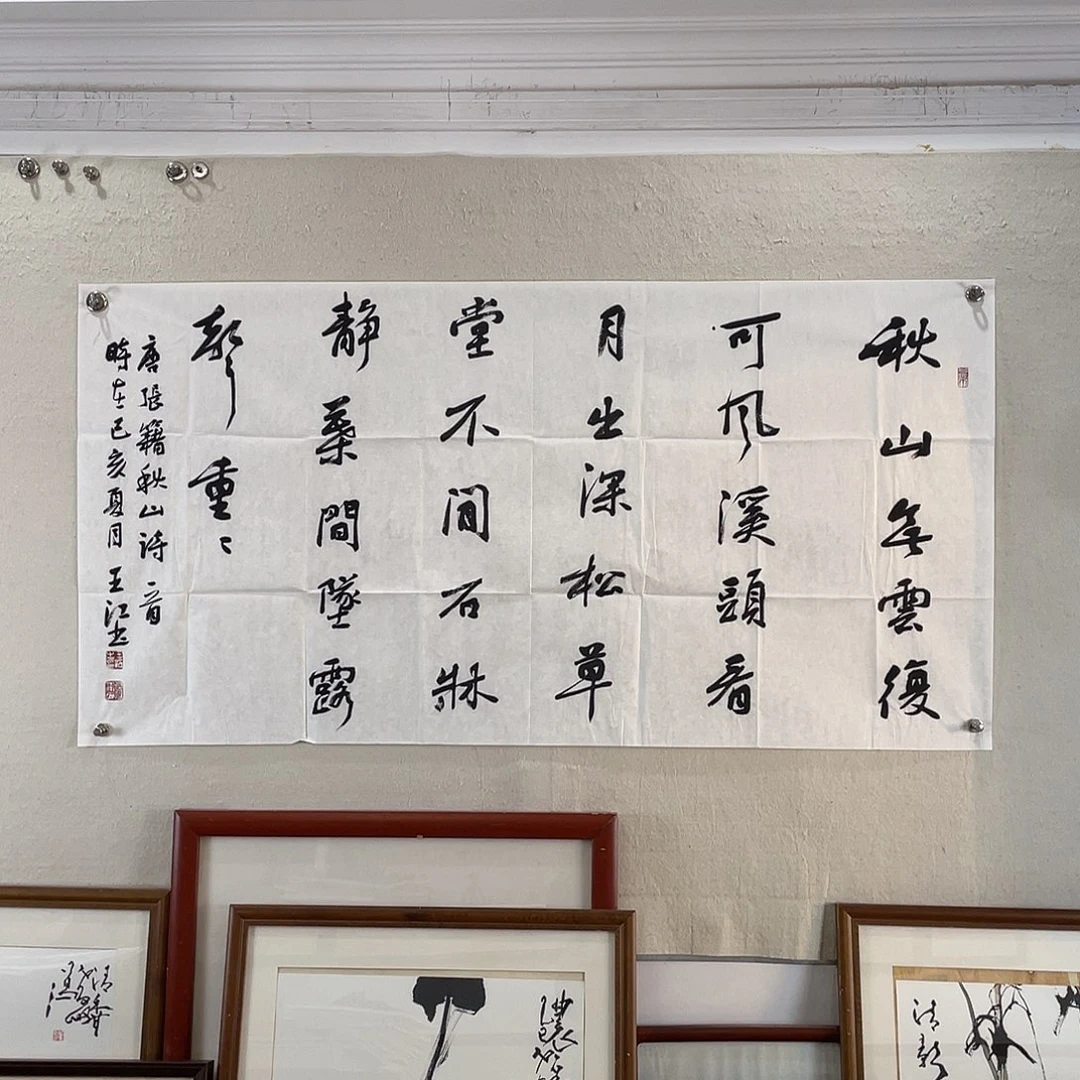 秋山無雲復
可風溪頭看
月出深松草
堂不閒石牀
靜葉間墜露
聲重〻
唐張籍秋山詩一首
時在己亥夏月 王江書